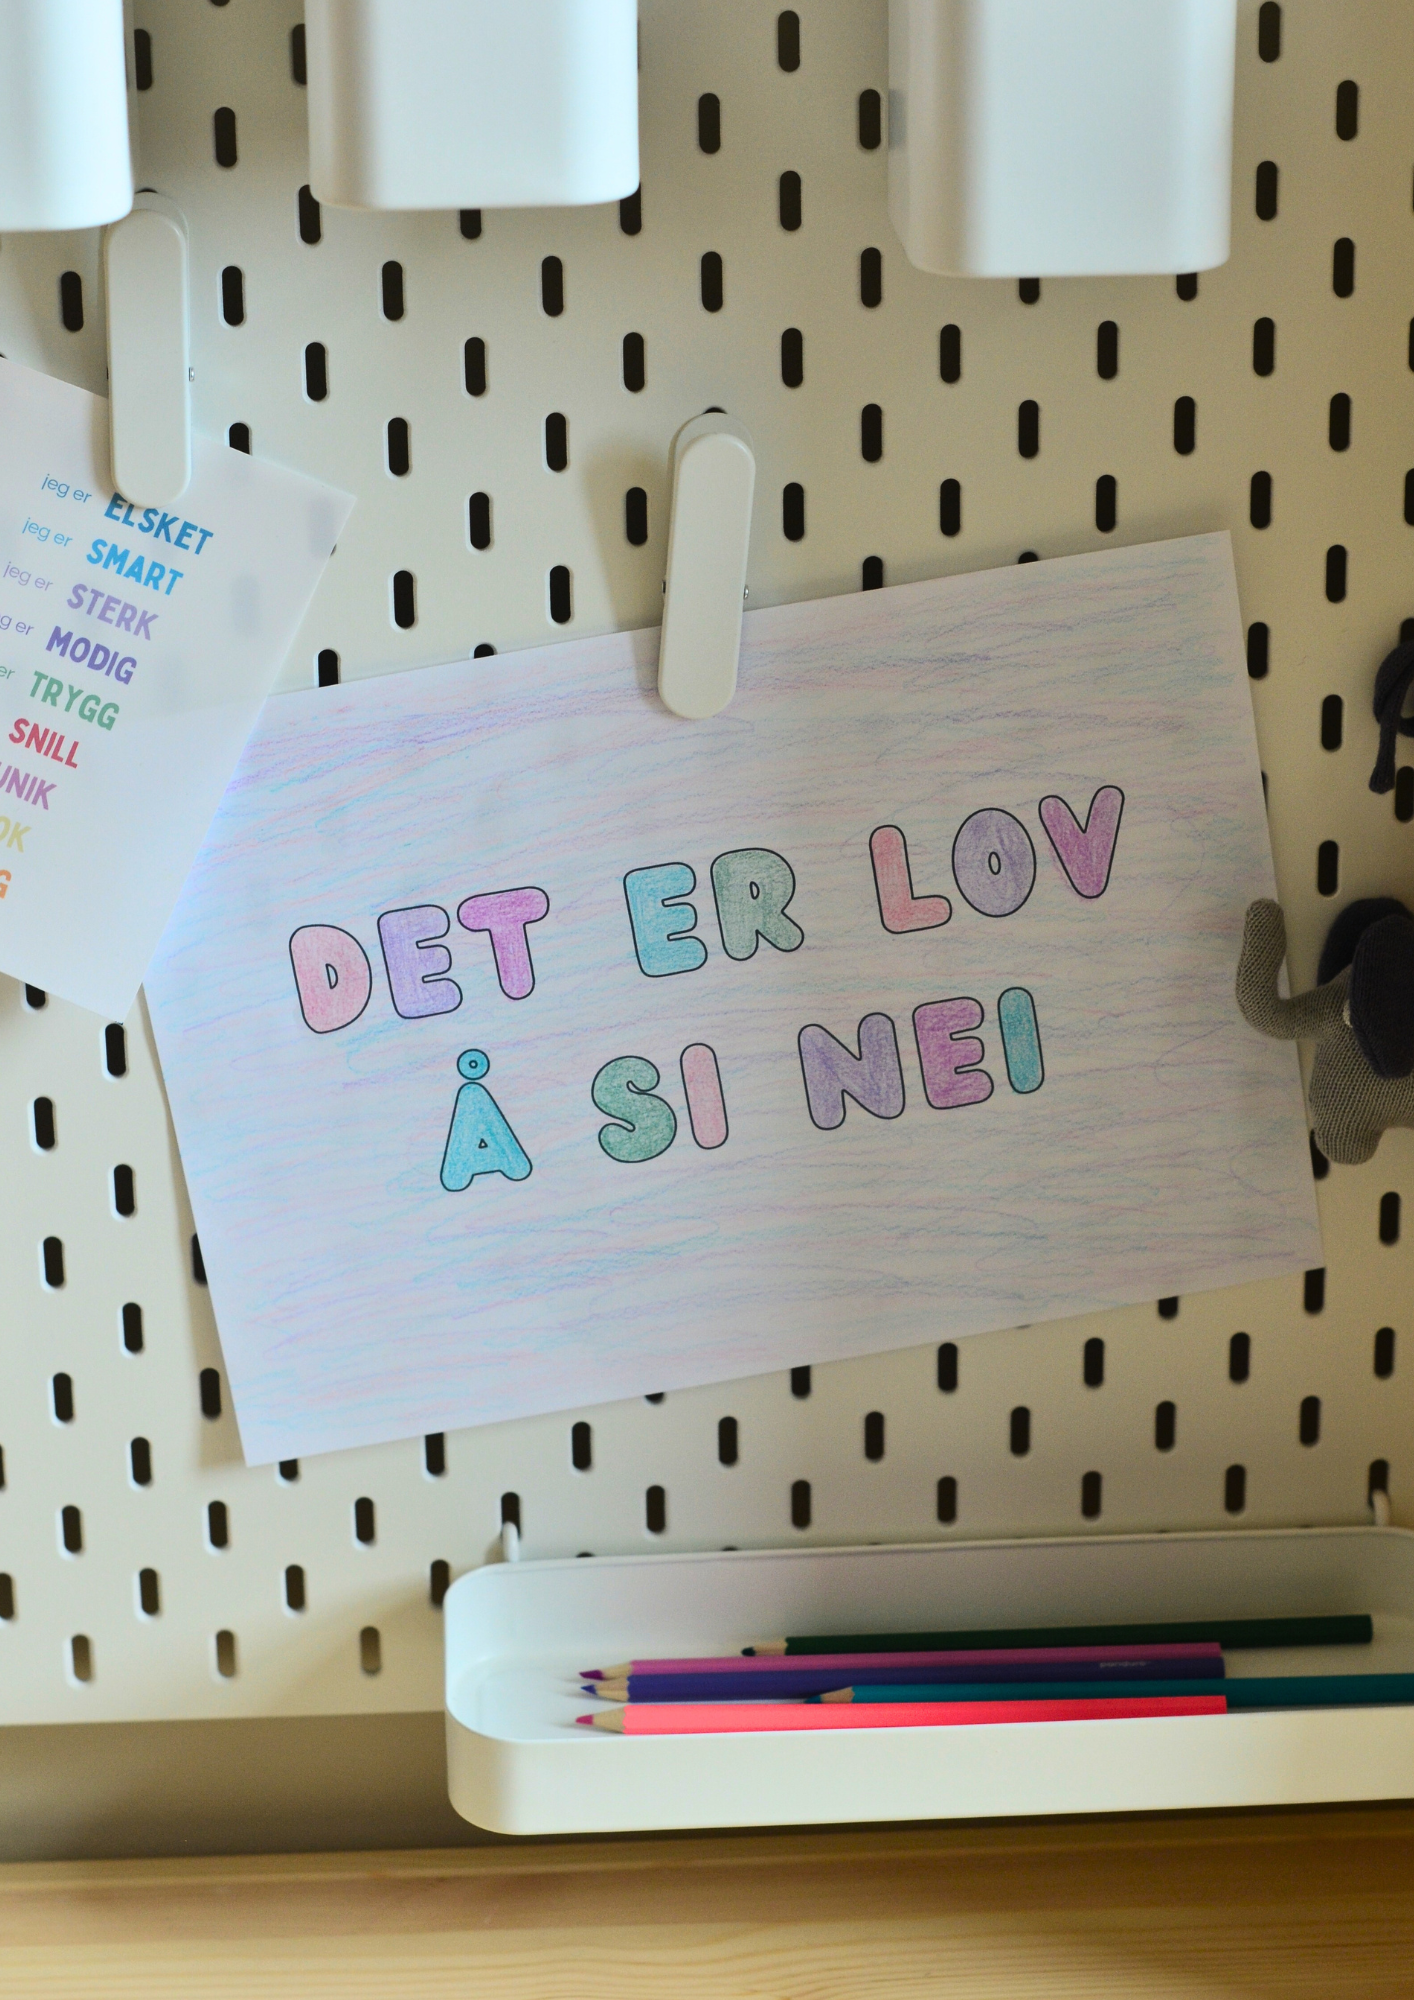 jeg er ELSKET
jeg er SMART
jeg er STERK
g er MODIG
er TRYGG
SNILL
UNIK
OK
G
DET ER LOV
Å SI NEI